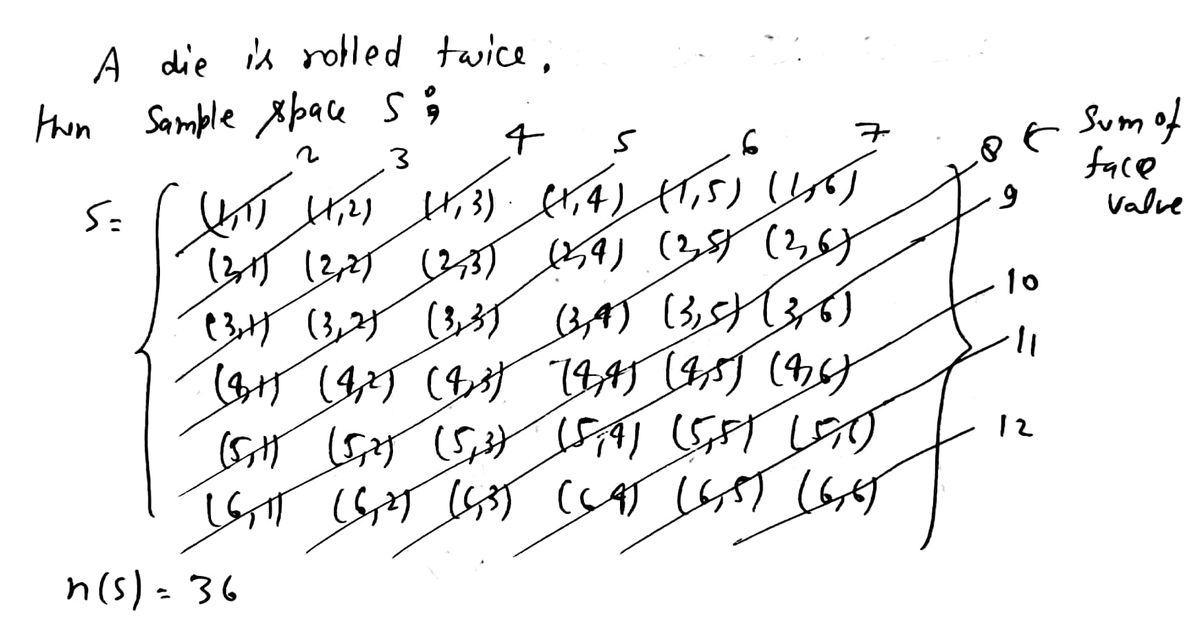 A die is rolled twice.
then Sample space S :
2 3 4 5 6 7 8 ← Sum of face value
S = { (1,1) (1,2) (1,3) (1,4) (1,5) (1,6) 9
(2,1) (2,2) (2,3) (2,4) (2,5) (2,6)
(3,1) (3,2) (3,3) (3,4) (3,5) (3,6) 10
(4,1) (4,2) (4,3) (4,4) (4,5) (4,6) 11
(5,1) (5,2) (5,3) (5,4) (5,5) (5,6) 12
(6,1) (6,2) (6,3) (6,4) (6,5) (6,6) }
n(s) = 36